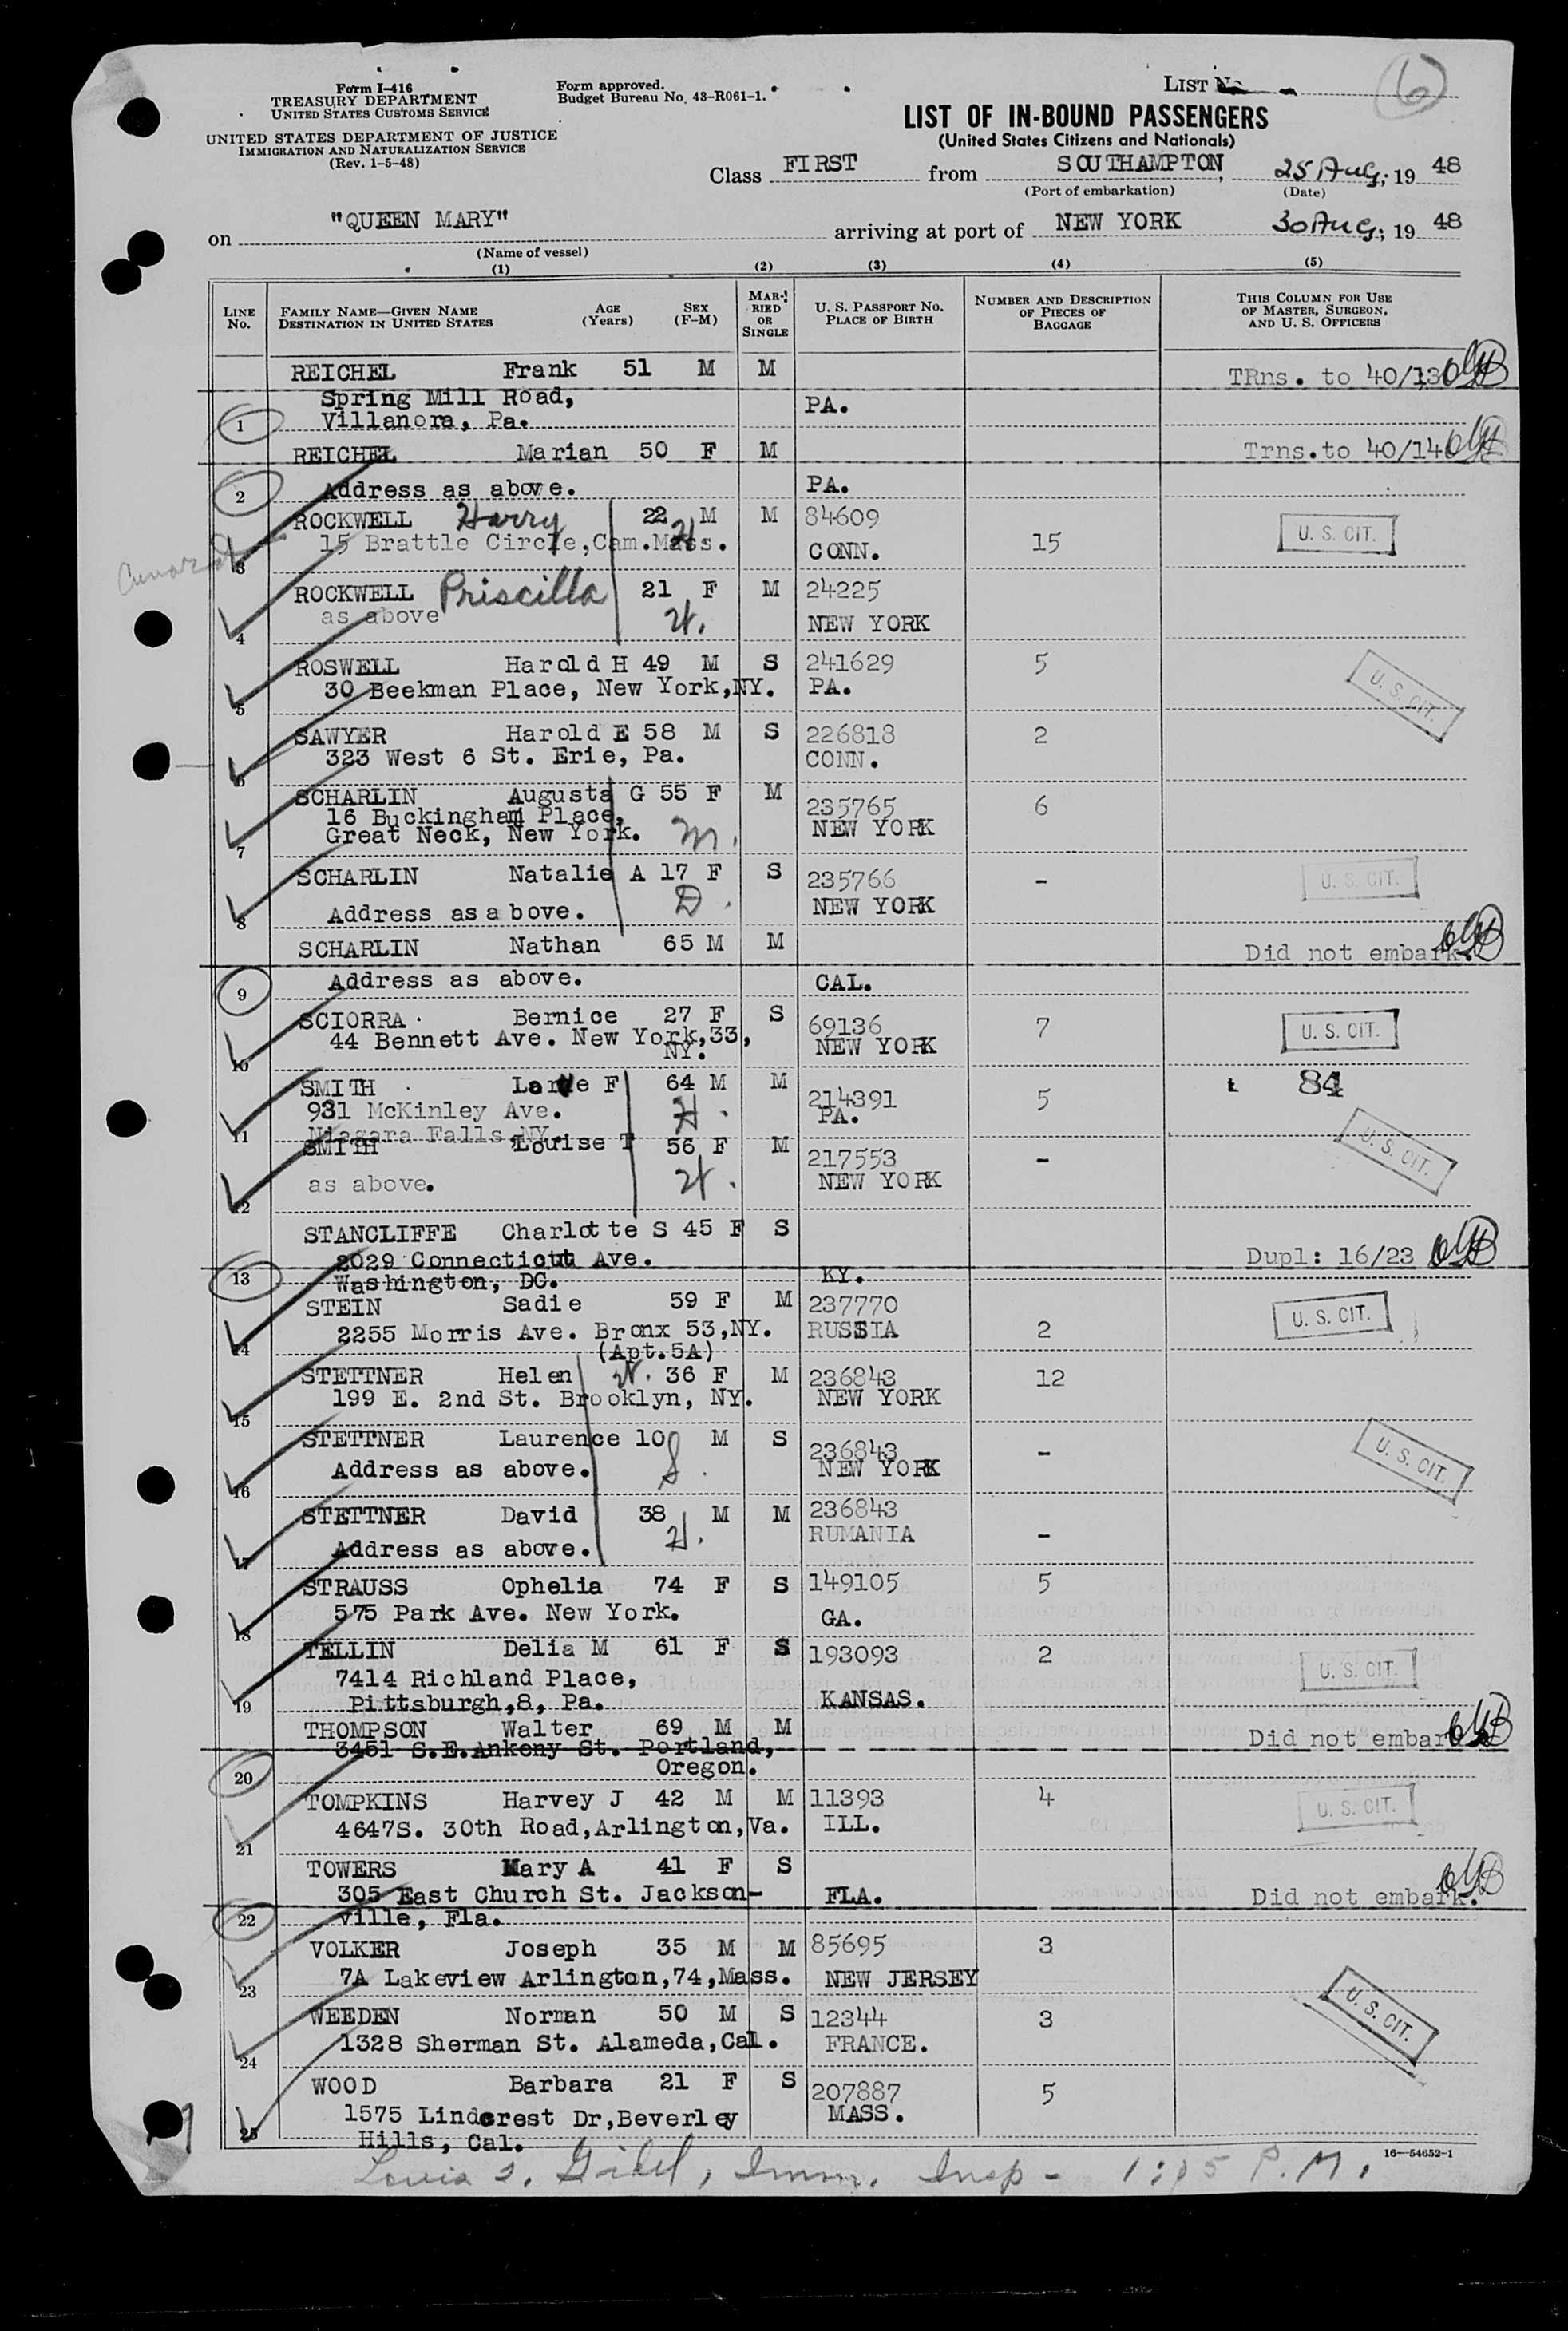 Form I-416
TREASURY DEPARTMENT
UNITED STATES CUSTOMS SERVICE
UNITED STATES DEPARTMENT OF JUSTICE
IMMIGRATION AND NATURALIZATION SERVICE
(Rev. 1-5-48)
Form approved.
Budget Bureau No. 43-R061-1.
LIST
6
LIST OF IN-BOUND PASSENGERS
(United States Citizens and Nationals)
Class FIRST from SOUTHAMPTON, 25 Aug, 19 48
(Port of embarkation) (Date)
on "QUEEN MARY" arriving at port of NEW YORK 30 Aug, 19 48
(Name of vessel)
(1) (2) (3) (4) (5)
LINE No. FAMILY NAME—GIVEN NAME DESTINATION IN UNITED STATES AGE (Years) SEX (F-M) MARRIED OR SINGLE U. S. PASSPORT NO. PLACE OF BIRTH NUMBER AND DESCRIPTION OF PIECES OF BAGGAGE THIS COLUMN FOR USE OF MASTER, SURGEON, AND U. S. OFFICERS
REICHEL Frank 51 M M TRns. to 40/13
Spring Mill Road, PA.
1 Villanora, Pa.
REICHEL Marian 50 F M Trns.to 40/14
2 Address as above. PA.
ROCKWELL Harry 22 M M 84609
15 Brattle Circle,Cam.Mass. H CONN. 15 U. S. CIT.
Cunard
3
ROCKWELL Priscilla 21 F M 24225
as above W. NEW YORK
4
ROSWELL Harold H 49 M S 241629 5
30 Beekman Place, New York,NY. PA. U. S. CIT.
5
SAWYER Harold E 58 M S 226818 2
323 West 6 St. Erie, Pa. CONN.
6
SCHARLIN Augusta G 55 F M 235765 6
16 Buckingham Place, NEW YORK
Great Neck, New York. M.
7
SCHARLIN Natalie A 17 F S 235766 - U. S. CIT.
Address as above. D. NEW YORK
8
SCHARLIN Nathan 65 M M Did not embark.
9 Address as above. CAL.
SCIORRA Bernice 27 F S 69136 7 U. S. CIT.
44 Bennett Ave. New York,33, NEW YORK
NY.
10
SMITH F 64 M M 214391 5 84
931 McKinley Ave. H. PA.
11 Niagara Falls,NY.
SMITH Louise T 56 F M 217553 - U. S. CIT.
as above. W. NEW YORK
12
STANCLIFFE Charlotte S 45 F S
2029 Connecticut Ave. Dupl: 16/23
13 Washington, DC. KY.
STEIN Sadie 59 F M 237770 U. S. CIT.
2255 Morris Ave. Bronx 53,NY. RUSSIA 2
14 (Apt.5A)
STETTNER Helen W. 36 F M 236843 12
199 E. 2nd St. Brooklyn, NY. NEW YORK
15
STETTNER Laurence 10 M S 236843 - U. S. CIT.
Address as above. S. NEW YORK
16
STETTNER David 38 M M 236843
Address as above. H. RUMANIA -
17
STRAUSS Ophelia 74 F S 149105 5
575 Park Ave. New York. GA.
18
TELLIN Delia M 61 F S 193093 2 U. S. CIT.
7414 Richland Place,
19 Pittsburgh,8, Pa. KANSAS.
THOMPSON Walter 69 M M Did not embark
3451 S.E.Ankeny St. Portland,
20 Oregon.
TOMPKINS Harvey J 42 M M 11393 4 U. S. CIT.
4647S. 30th Road,Arlington,Va. ILL.
21
TOWERS Mary A 41 F S
305 East Church St. Jackson- FLA. Did not embark.
22 ville, Fla.
VOLKER Joseph 35 M M 85695 3
7A Lakeview Arlington,74,Mass. NEW JERSEY
23
WEEDEN Norman 50 M S 12344 3 U. S. CIT.
1328 Sherman St. Alameda,Cal. FRANCE.
24
WOOD Barbara 21 F S 207887 5
1575 Lindcrest Dr,Beverley MASS.
25 Hills, Cal.
16—54652-1
Imm. Insp - P.M.